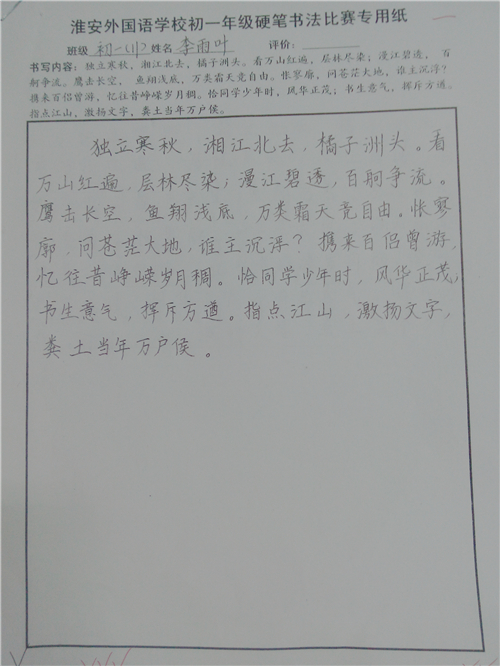 淮安外国语学校初一年级硬笔书法比赛专用纸
班级 初一(11) 姓名 李雨叶 评价:
书写内容:独立寒秋,湘江北去,橘子洲头。看万山红遍,层林尽染;漫江碧透,百
舸争流。鹰击长空,鱼翔浅底,万类霜天竞自由。怅寥廓,问苍茫大地,谁主沉浮?
携来百侣曾游,忆往昔峥嵘岁月稠。恰同学少年时,风华正茂;书生意气,挥斥方遒。
指点江山,激扬文字,粪土当年万户侯。
独立寒秋,湘江北去,橘子洲头。看
万山红遍,层林尽染;漫江碧透,百舸争流。
鹰击长空,鱼翔浅底,万类霜天竞自由。怅寥
廓,问苍茫大地,谁主沉浮?携来百侣曾游,
忆往昔峥嵘岁月稠。恰同学少年时,风华正茂,
书生意气,挥斥方遒。指点江山,激扬文字,
粪土当年万户侯。